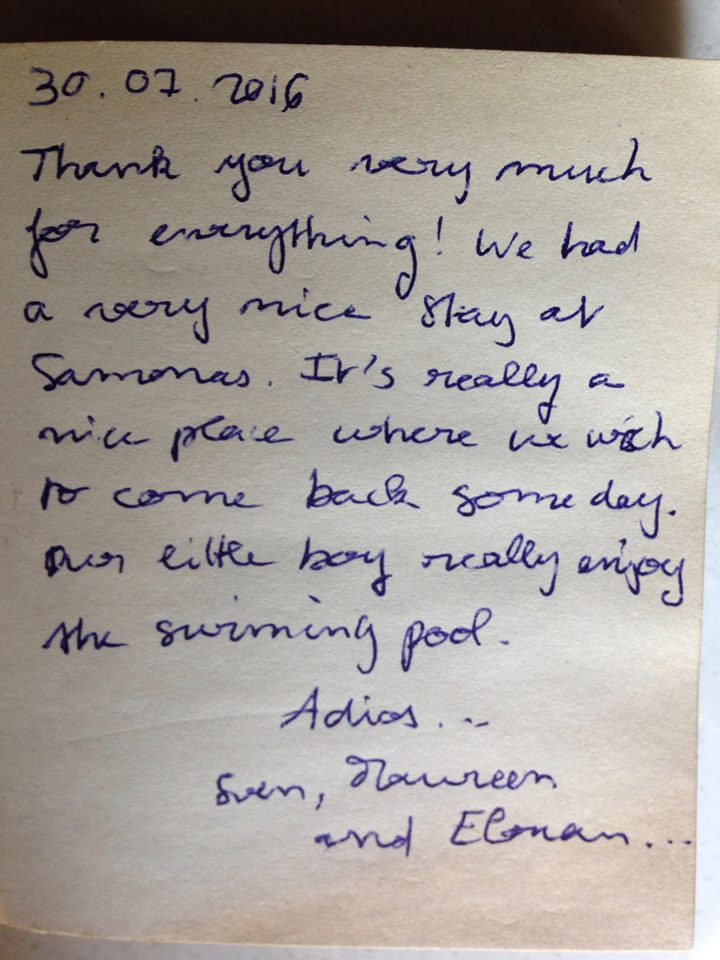 30.07.2016
Thank you very much
for everything! We had
a very nice stay at
Samonas. It's really a
nice place where we wish
to come back some day.
Our little boy really enjoy
the swimming pool.
Adios...
Sven, Maureen
and Elouan...